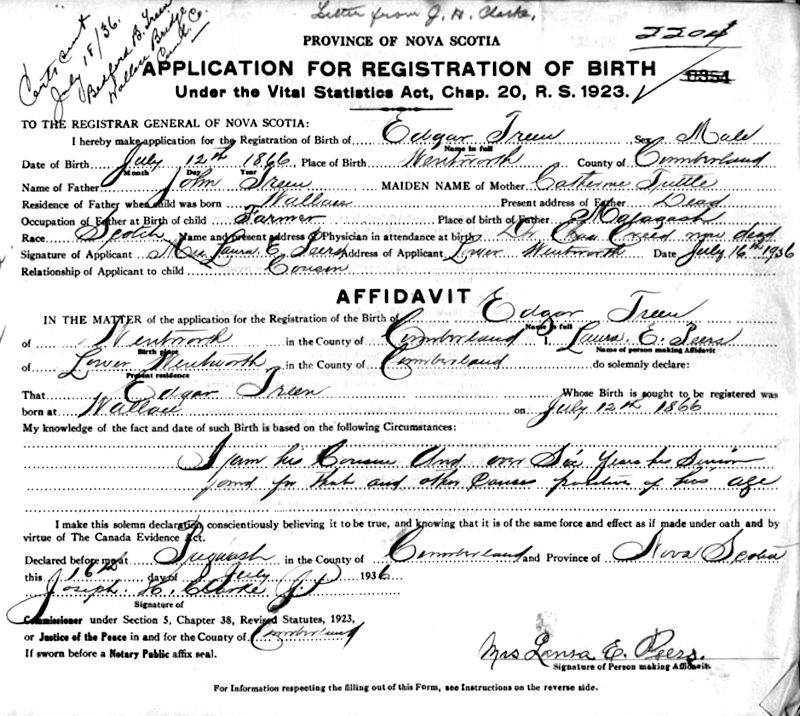 Letter from J. H. Clarke.
Cert. sent
July 18/36.
Bedford B. Treen
Wallace Bridge
Cumb. Co.
2204
PROVINCE OF NOVA SCOTIA
APPLICATION FOR REGISTRATION OF BIRTH
0354
Under the Vital Statistics Act, Chap. 20, R. S. 1923.
TO THE REGISTRAR GENERAL OF NOVA SCOTIA:
I hereby make application for the Registration of Birth of Edgar Treen Sex Male
Name in full
Date of Birth July 12th 1866 Place of Birth Wentworth County of Cumberland
Month Day Year
Name of Father John Treen MAIDEN NAME of Mother Catherine Tuttle
Residence of Father when child was born Wallace Present address of Father Dead
Occupation of Father at Birth of child Farmer Place of birth of Father Malagash
Race Scotch Name and Present address of Physician in attendance at birth Dr Creed now dead
Signature of Applicant Mrs. Laura E. Peers Address of Applicant Lower Wentworth Date July 16th 1936
Relationship of Applicant to child Cousin
AFFIDAVIT
IN THE MATTER of the application for the Registration of the Birth of Edgar Treen
Name in full
of Wentworth in the County of Cumberland I, Laura E. Peers
Birth place Name of person making Affidavit
of Lower Wentworth in the County of Cumberland do solemnly declare:
Present residence
That Edgar Treen Whose Birth is sought to be registered was
born at Wallace on July 12th 1866
My knowledge of the fact and date of such Birth is based on the following Circumstances:
I am his Cousin and over Six Years his Senior
and for that and other Causes positive of his age
I make this solemn declaration conscientiously believing it to be true, and knowing that it is of the same force and effect as if made under oath and by
virtue of The Canada Evidence Act.
Declared before me at Pugwash in the County of Cumberland and Province of Nova Scotia
this 16th day of July 1936
Joseph H. Clarke J.P.
Signature of
Commissioner under Section 5, Chapter 38, Revised Statutes, 1923,
or Justice of the Peace in and for the County of Cumberland
If sworn before a Notary Public affix seal.
Mrs Laura E. Peers.
Signature of Person making Affidavit.
For Information respecting the filling out of this Form, see Instructions on the reverse side.